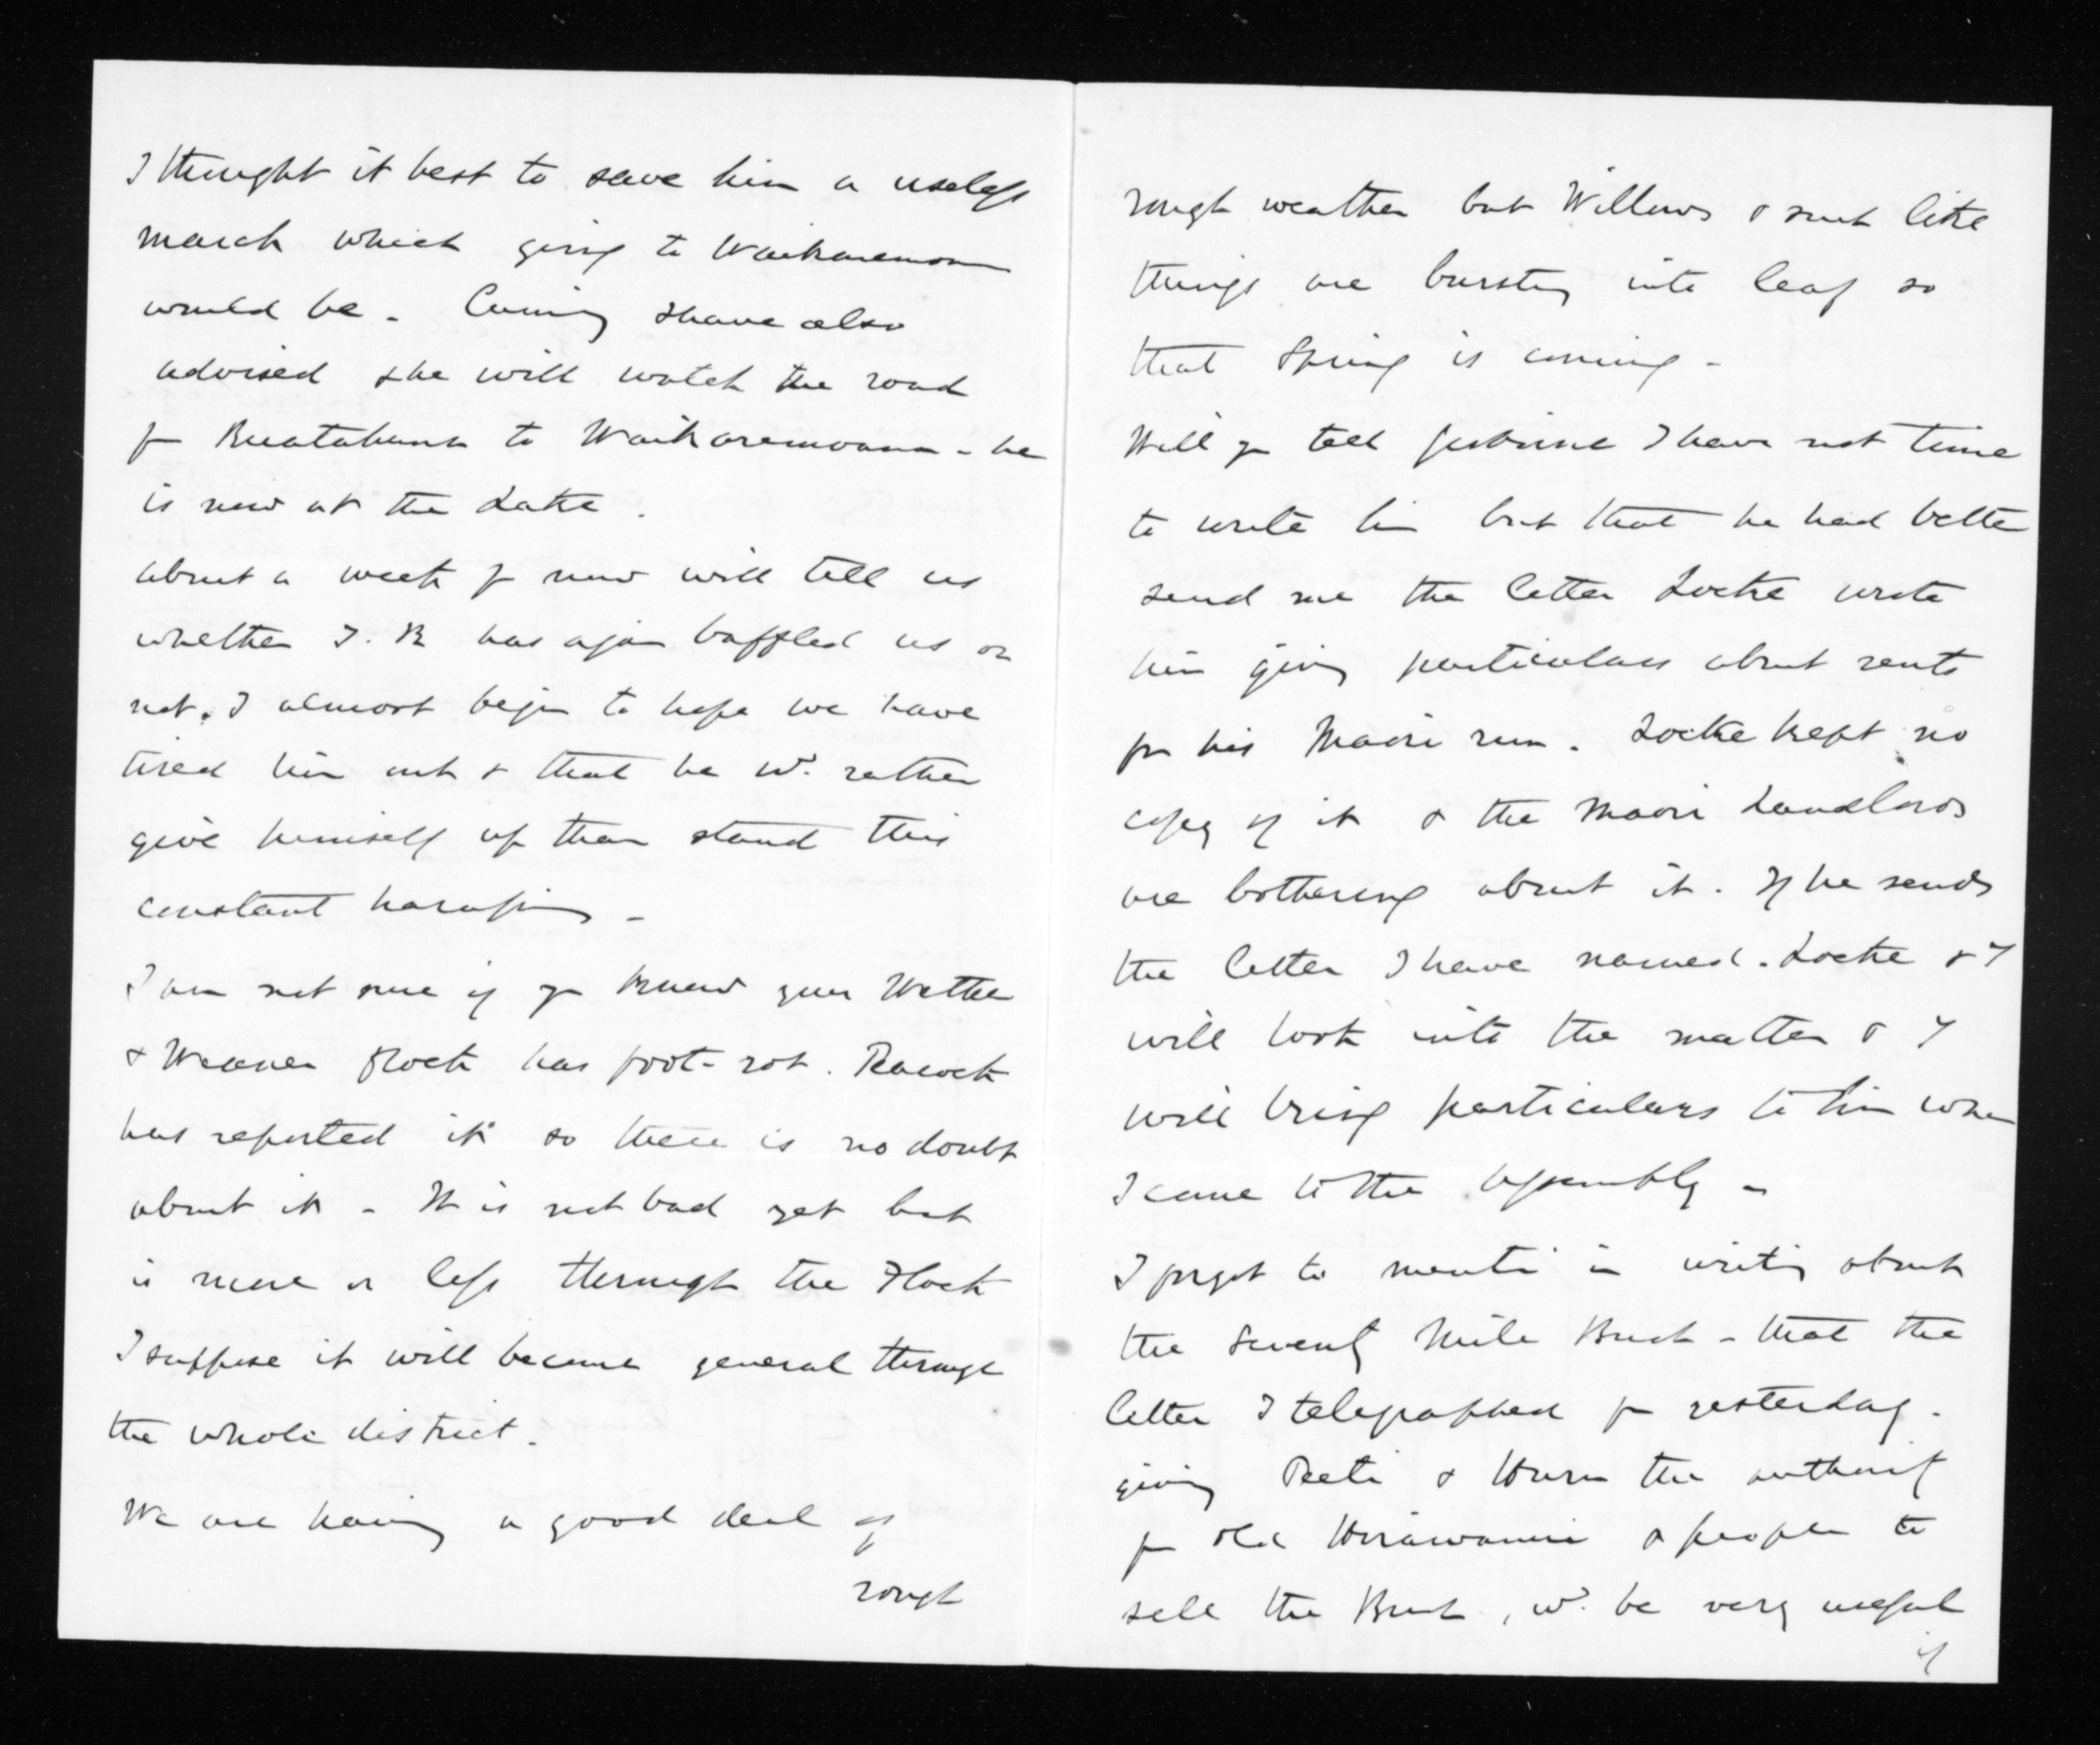 I thought it best to save him a useless
march which going to Waikaremoana
would be. Cumming I have also
advised & he will watch the road
fm Ruatahuna to Waikaremoana - he
is now at the Lake.
about a week fm now will tell us
whether T. K has again baffled us or
not. I almost begin to hope we have
tired him out & that he wd. rather
give himself up than stand this
constant harassing -
I am not sure if you know your Wether
& Weaner flock has foot-rot. Peacock
has reported it so there is no doubt
about it - It is not bad yet but
is more or less through the Flock
I suppose it will become general through
the whole district.
We are having a good deal of
rough
rough weather but Willows & such like
things are bursting into leaf so
that Spring is coming -
Will you tell I have not time
to write him but that he had better
send me the letter Locke wrote
him giving particulars about rents
for his Maori run. Locke kept no
copy of it & the Maori Landlords
are bothering about it. If he sends
the letter I have named. Locke & I
will look into the matter & I
will bring particulars to him when
I come to the Assembly -
I forgot to mention in writing about
the Seventy Mile Bush - that the
letter I telegraphed for yesterday.
giving Peeti & Huru the authority
fm old Hirawanu & people to
sell the Bush, wd. be very useful
if